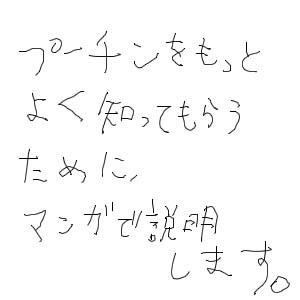 プーチンをもっと
よく知ってもらう
ために、
マンガで説明
します。